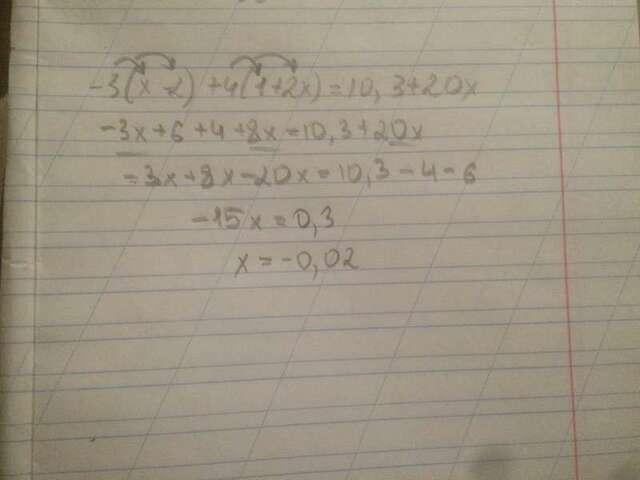 -3(x-2)+4(1+2x)=10,3+20x
-3x+6+4+8x=10,3+20x
-3x+8x-20x=10,3-4-6
-15x=0,3
x=-0,02